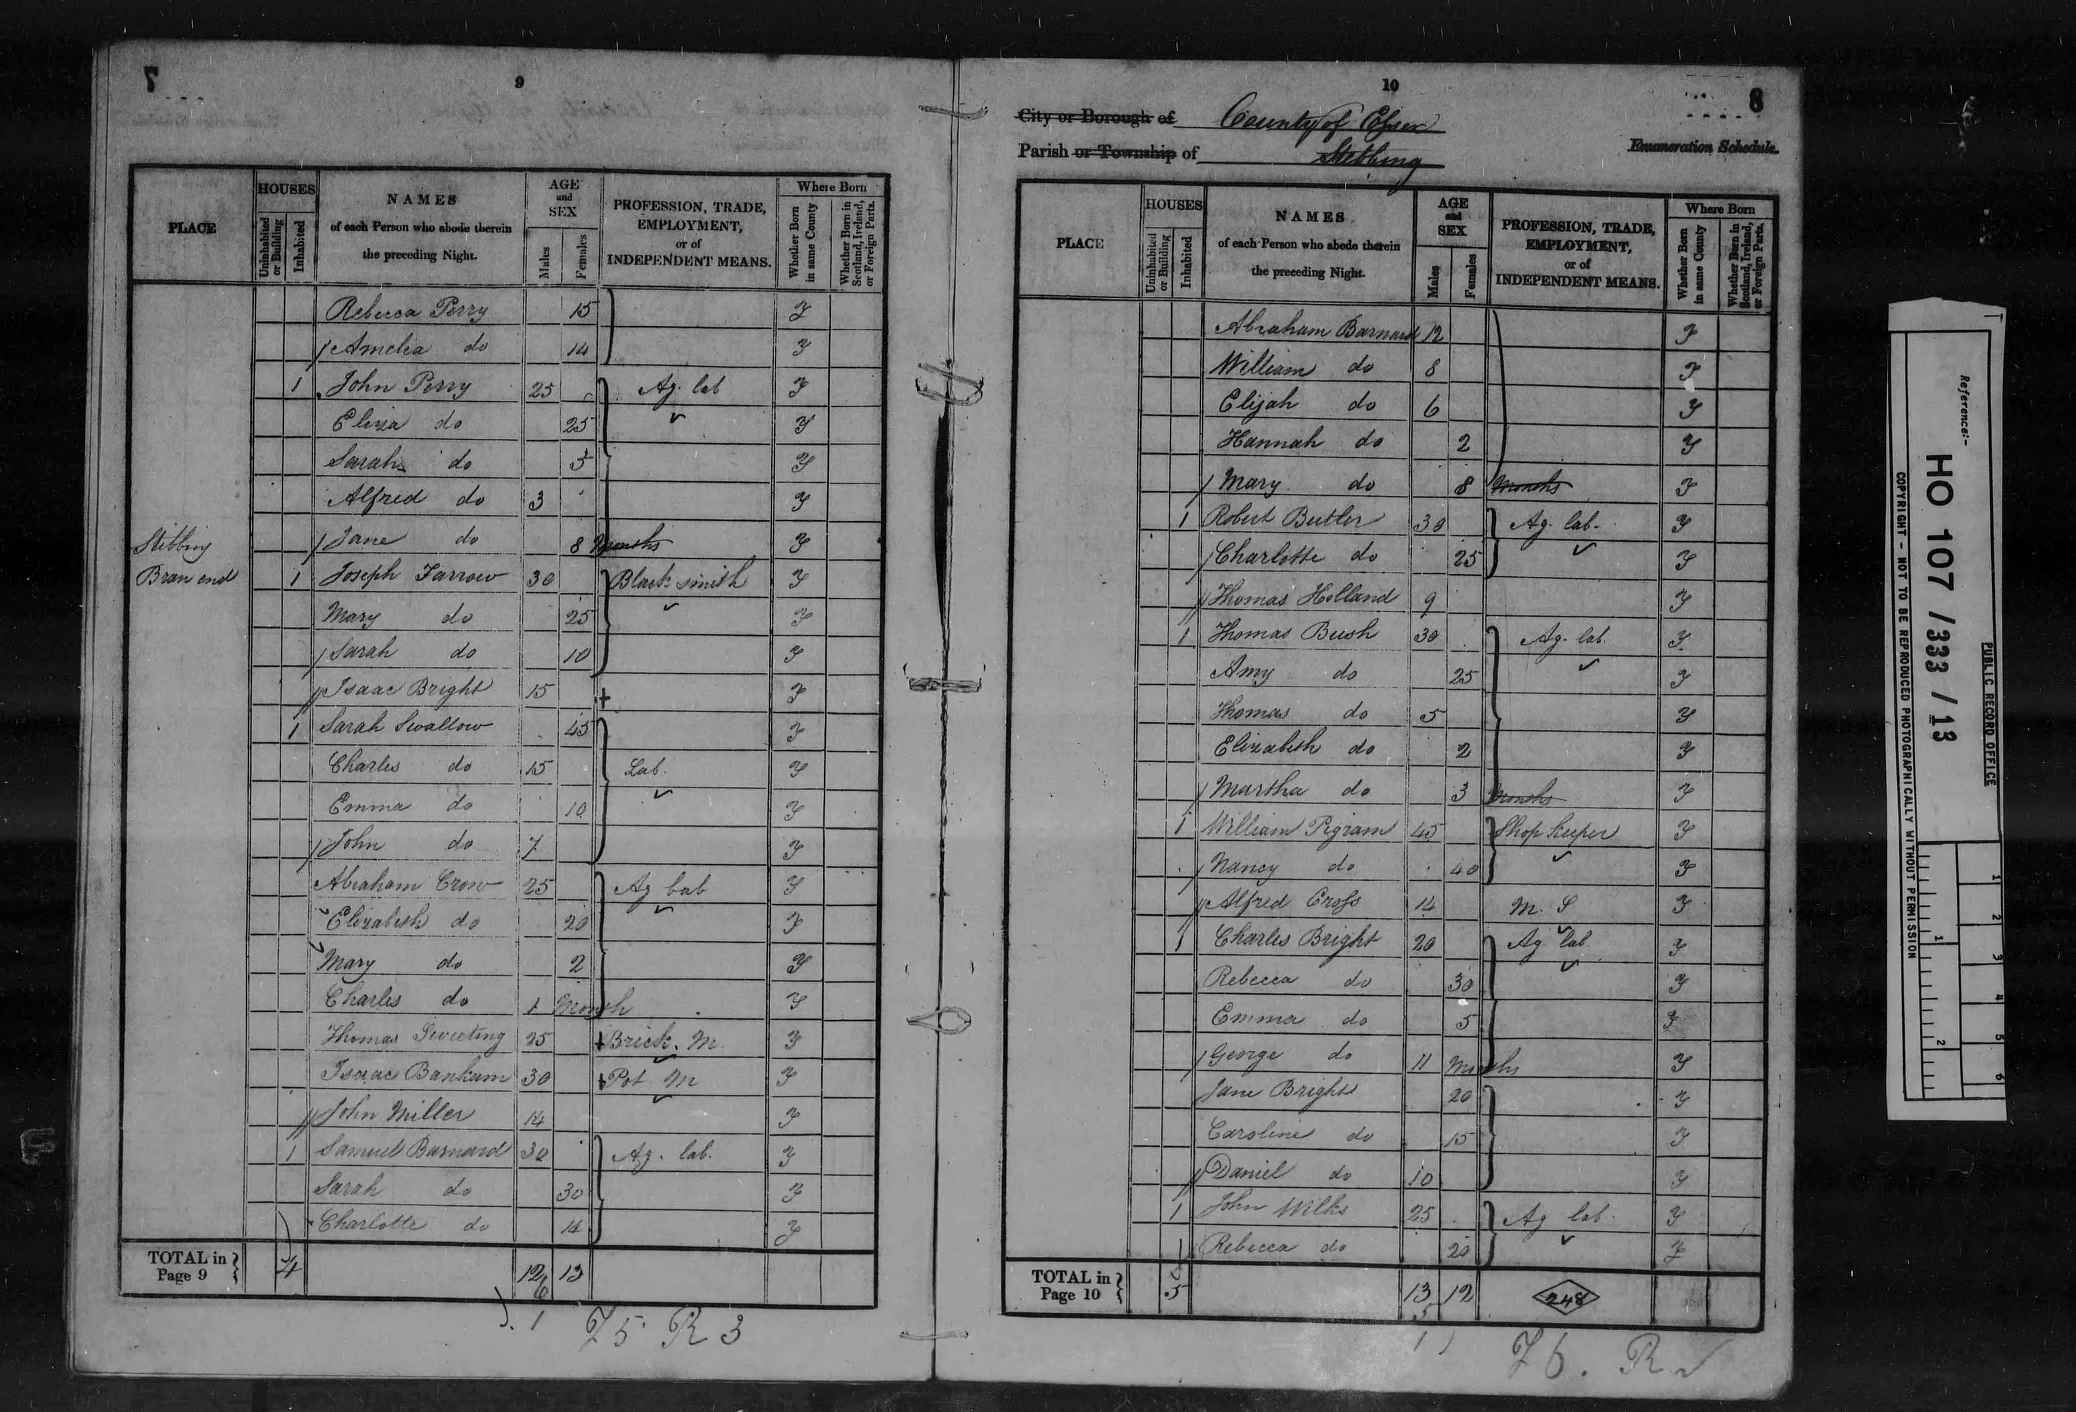 7
9
PLACE
HOUSES
Uninhabited or Building
Inhabited
NAMES
of each Person who abode therein
the preceding Night.
AGE and SEX
Males
Females
PROFESSION, TRADE, EMPLOYMENT, or of INDEPENDENT MEANS.
Where Born
Whether Born in same County
Whether Born in Scotland, Ireland, or Foreign Parts.
Rebecca Perry 15 Y
Amelia do 14 Y
1 John Perry 25 Ag. lab Y
Eliza do 25 Y
Sarah do 5 Y
Alfred do 3 Y
Stebbing Jane do 8 Months Y
Bran end 1 Joseph Farrow 30 Black smith Y
Mary do 25 Y
Sarah do 10 Y
Isaac Bright 15 Y
1 Sarah Swallow 45 Y
Charles do 15 Lab. Y
Emma do 10 Y
John do 7 Y
Abraham Crow 25 Ag Lab Y
Elizabeth do 20 Y
Mary do 2 Y
Charles do 1 Month Y
Thomas Sweeting 25 Brick. M. Y
Isaac Banham 30 Pot M Y
John Miller 14 Y
1 Samuel Barnard 30 Ag. lab. Y
Sarah do 30 Y
Charlotte do 14 Y
TOTAL in Page 9 4 12 13
6
1 Y 5 R 3
10
8
City or Borough of County of Essex
Parish or Township of Stebbing
Enumeration Schedule.
PLACE
HOUSES
Uninhabited or Building
Inhabited
NAMES
of each Person who abode therein
the preceding Night.
AGE and SEX
Males
Females
PROFESSION, TRADE, EMPLOYMENT, or of INDEPENDENT MEANS.
Where Born
Whether Born in same County
Whether Born in Scotland, Ireland, or Foreign Parts.
Abraham Barnard 12 Y
William do 8 Y
Elijah do 6 Y
Hannah do 2 Y
Mary do 8 Months Y
1 Robert Butler 30 Ag. lab. Y
Charlotte do 25 Y
Thomas Holland 9 Y
1 Thomas Bush 30 Ag. lab. Y
Amy do 25 Y
Thomas do 5 Y
Elizabeth do 2 Y
Martha do 3 Months Y
1 William Pigram 45 Shop keeper Y
Nancy do 40 Y
Alfred Cross 14 M. S Y
1 Charles Bright 20 Ag lab Y
Rebecca do 30 Y
Emma do 5 Y
George do 11 Months Y
Jane Bright 20 Y
Caroline do 15 Y
Daniel do 10 Y
1 John Wilks 25 Ag lab. Y
Rebecca do 20 Y
TOTAL in Page 10 5 13 12 248
5
1 Y 6. R
PUBLIC RECORD OFFICE
Reference:-
HO 107/333/13
COPYRIGHT - NOT TO BE REPRODUCED PHOTOGRAPHICALLY WITHOUT PERMISSION
1 2 3 4 5 6
1 2